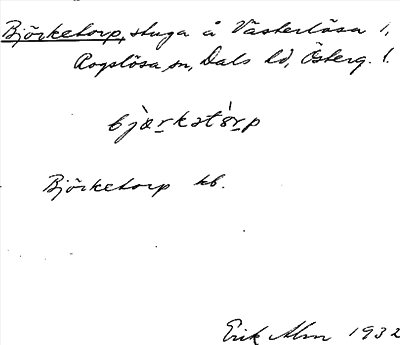 Björketorp, stuga å Västerlösa 1,
Rogslösa sn, Dals hd, Österg. l.
bjærkətórp
Björketorp kb.
Erik Alm 1932